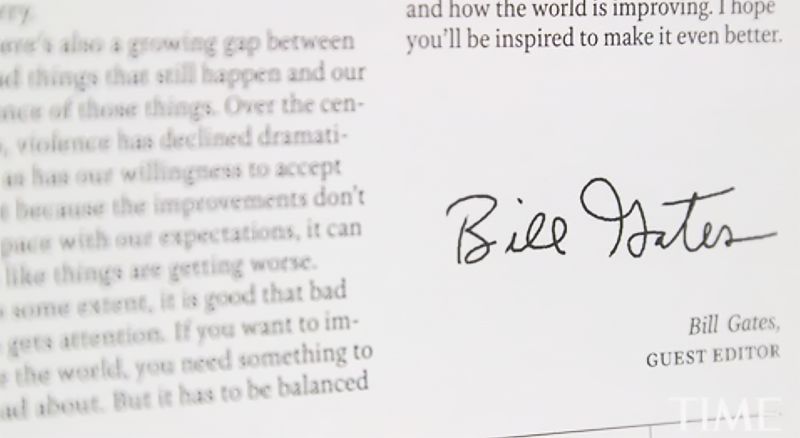 ere's also a growing gap between
things that still happen and our
of those things. Over the cen-
violence has declined dramati-
as has our willingness to accept
because the improvements don't
pace with our expectations, it can
like things are getting worse.
some extent, it is good that bad
gets attention. If you want to im-
the world, you need something to
about. But it has to be balanced
and how the world is improving. I hope
you'll be inspired to make it even better.
Bill Gates
Bill Gates,
GUEST EDITOR
TIME